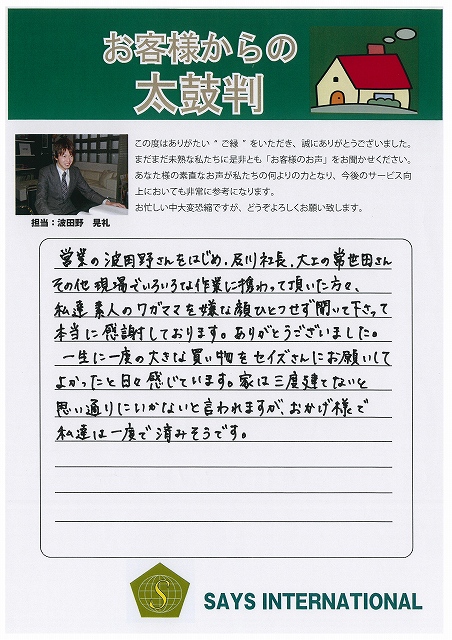 お客様からの
太鼓判
この度はありがたい“ご縁”をいただき、誠にありがとうございました。
まだまだ未熟な私たちに是非とも「お客様のお声」をお聞かせください。
あなた様の素直なお声が私たちの何よりの力となり、今後のサービス向
上においても非常に参考になります。
お忙しい中大変恐縮ですが、どうぞよろしくお願い致します。
担当：波田野 晃礼
営業の波田野さんをはじめ、及川社長、大工の常世田さん
その他現場でいろいろな作業に携わって頂いた方々、
私達素人のワガママを嫌な顔ひとつせず聞いて下さって
本当に感謝しております。ありがとうございました。
一生に一度の大きな買い物をセイズさんにお願いして
よかったと日々感じています。家は三度建てないと
思い通りにいかないと言われますが、おかげ様で
私達は一度で済みそうです。
S
SAYS INTERNATIONAL